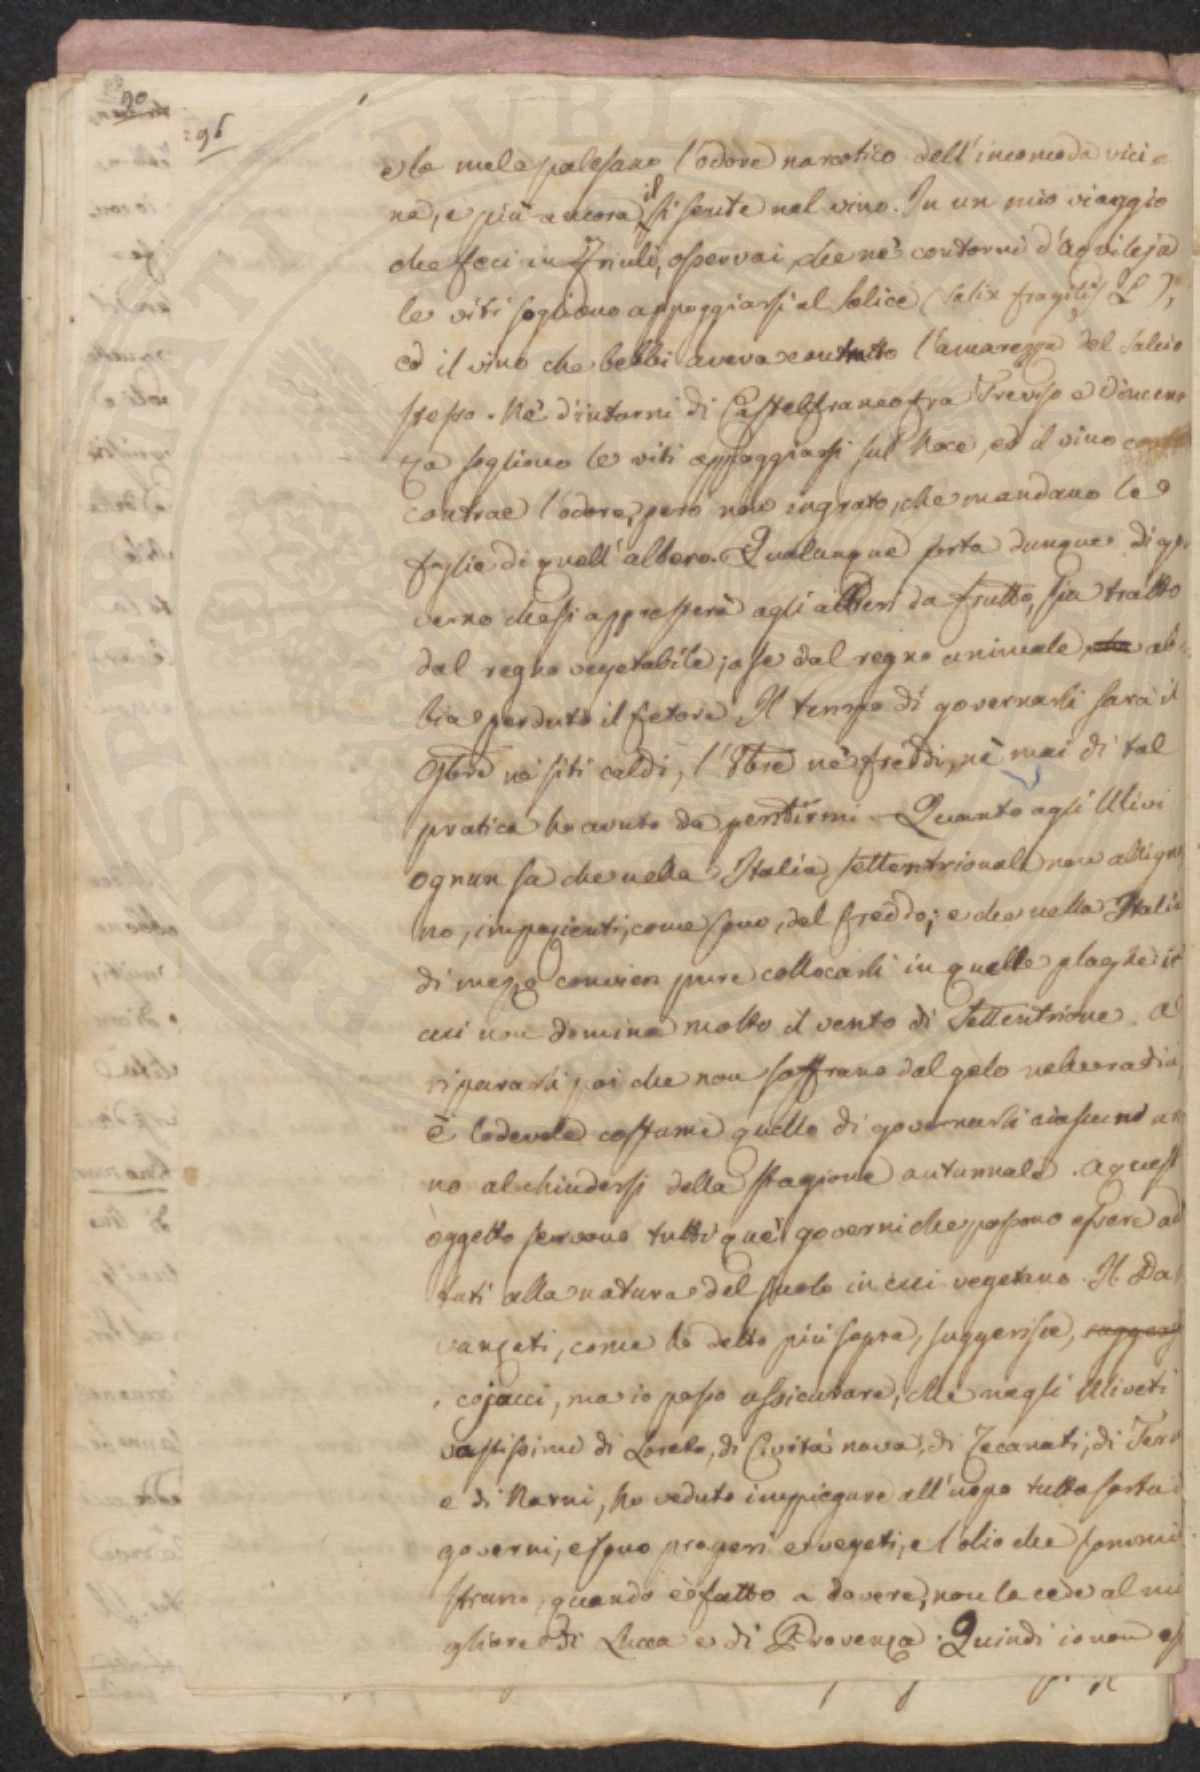 90
96
e le mele palesano l'odore narcotico dell'incomoda vici=
na, e più ancora il si sente nel vino. In un mio viaggio
che feci in Friuli, osservai, che ne' contorni d'Aquileja
le viti sogliono appoggiarsi al Salice (Salix fragilis L.),
ed il vino che bebbi aveva contratto l'amarezza del Salcio
stesso. Ne' d'intorni di Castelfranco fra Treviso e Vincen
za sogliono le viti appoggiarsi sul Noce, ed il vino
contrae l'odore, però non ingrato, che mandano le
foglie di quell'albero. Qualunque sorta dunque di go
verno che si appresterà agli alberi da frutto, sia tratto
dal regno vegetabile, o sia dal regno animale, ab=
bia perduto il fetore. Il tempo di governarli sarà il
9bre ne' siti caldi, l'8bre ne' freddi, nè mai di tal
pratica ho avuto da pentirmi. Quanto agli Ulivi
ognun sa che nella Italia settentrionale non alligna
no, impazienti, come sono, del freddo; e che nella Italia
di mezzo convien pure collocarli in quelle plaghe in
cui non domina molto il vento di Settentrione. A
ripararli poi che non soffrano dal gelo nelle radici
è lodevole costume quello di governarli ciascund an
no al chiudersi della stagione autunnale. A quest
oggetto servono tutti que' governi che possono essere ad
tati alla natura del suolo in cui vegetano. Il Da
vanzati, come ho detto più sopra, suggerisce,
i cojacci, ma io posso assicurare, che negli Uliveti
vastissimi di Loreto, di Civita nova, di Recanati, di Terni
e di Narni, ho veduto impiegare all'uopo tutta sorta di
governi, e sono prosperi e vegeti, e l'olio che sommi
strano, quando è fatto a dovere, non la cede al mi
gliore di Lucca e di Provenza. Quindi io non